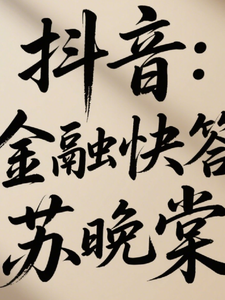 抖音:
金融快答
苏晚棠